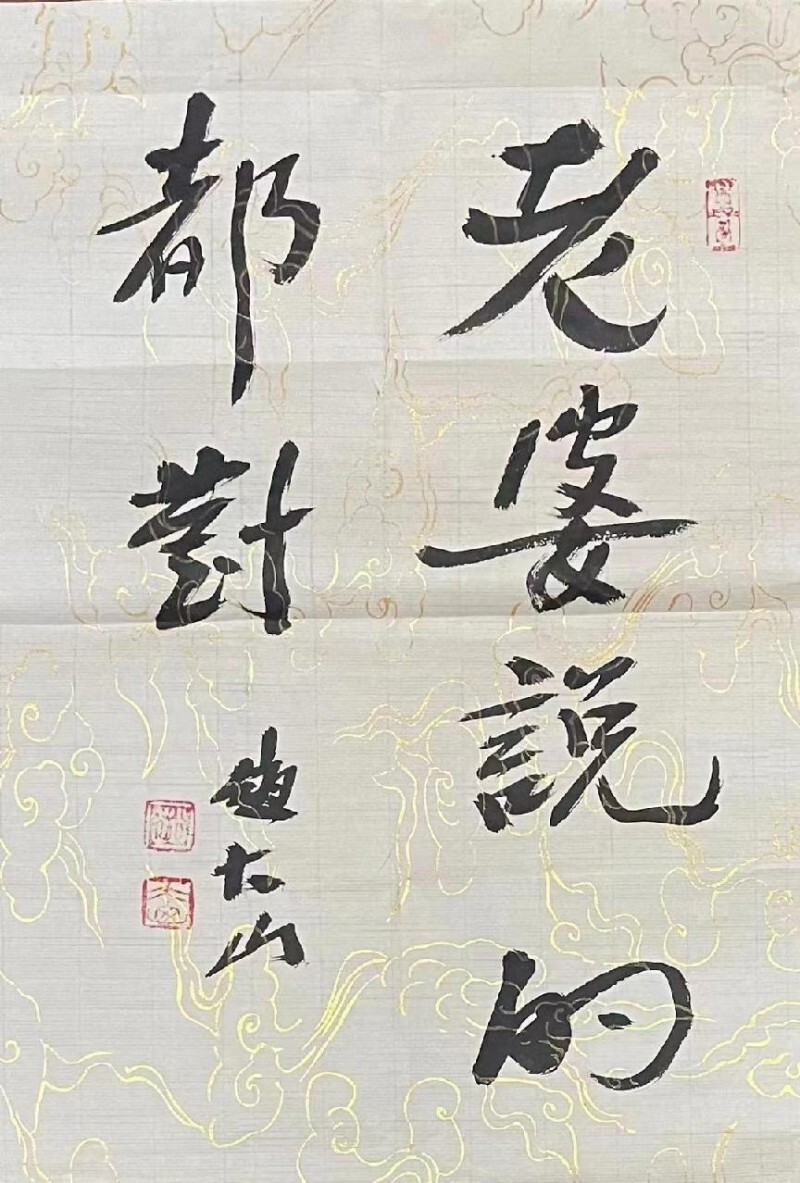 老婆說的
都對
趙大山